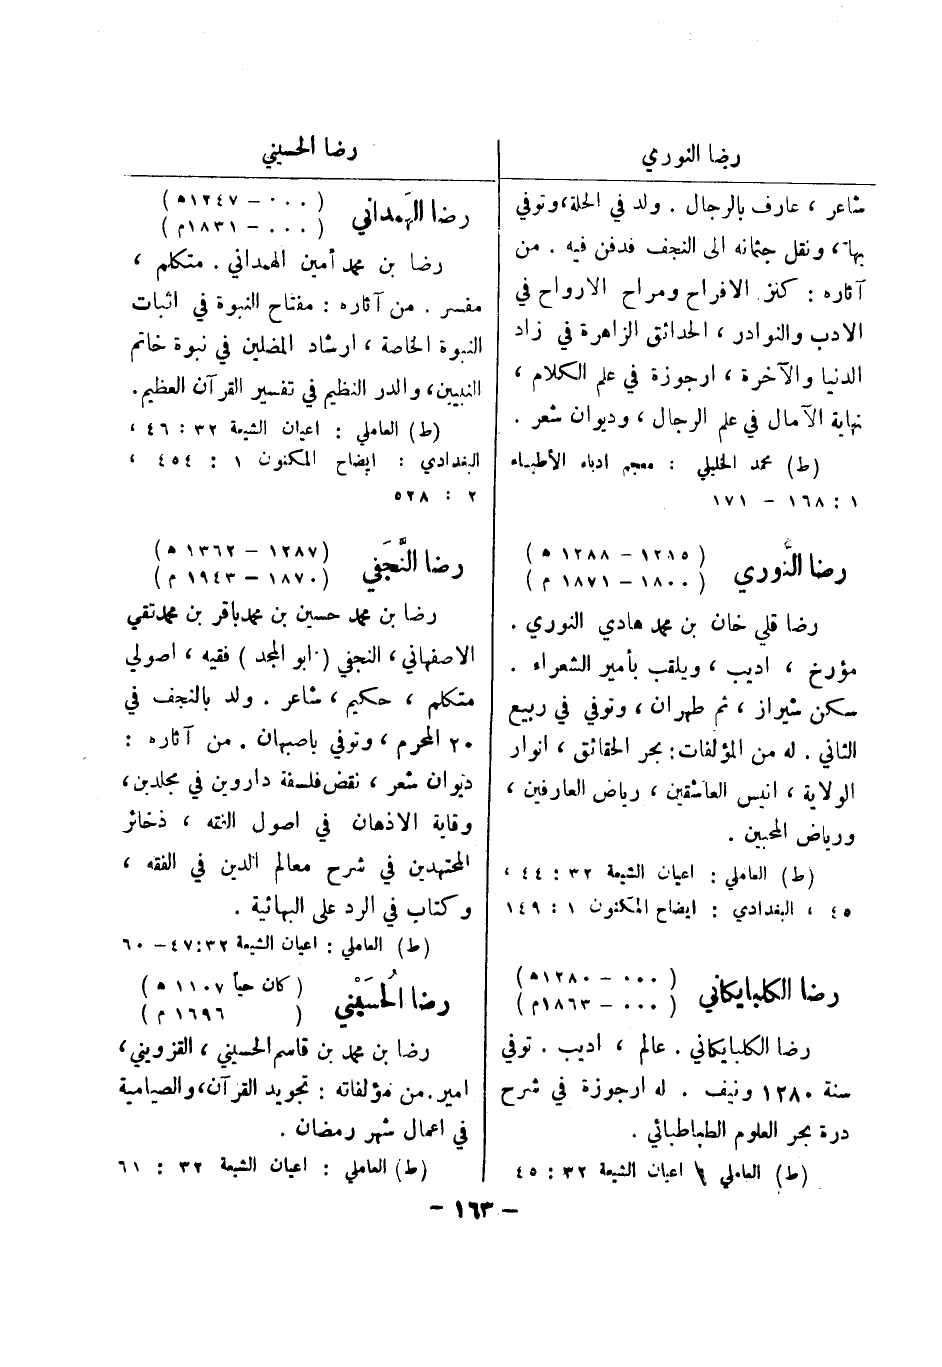 رضا النوري
شاعر ، عارف بالرجال . ولد في الحلة،وتوفي
بها ، ونقل جثمانه الى النجف فدفن فيه . من
آثاره : كنز الافراح ومراح الارواح في
الادب والنوادر ، الحدائق الزاهرة في زاد
الدنيا والآخرة ، ارجوزة في علم الكلام ،
نهاية الآمال في علم الرجال ، وديوان شعر .
(ط) محمد الخليلي : معجم ادباء الأطباء
١ : ١٦٨ – ١٧١
رضا النَّوري (١٢١٥ – ١٢٨٨ ه)
(١٨٠٠ – ١٨٧١ م)
رضا قلي خان بن محمد هادي النوري .
مؤرخ ، اديب ، ويلقب بأمير الشعراء .
سكن شيراز ، ثم طهران ، وتوفي في ربيع
الثاني . له من المؤلفات: بحر الحقائق ، انوار
الولاية ، انيس العاشقين ، رياض العارفين ،
ورياض المحبين .
(ط) العاملي : اعيان الشيعة ٣٢ : ٤٤ ،
٤٥ ، البغدادي : ايضاح المكنون ١ : ١٤٩
رضا الكلبايكاني (٠٠٠ – ١٢٨٠ه)
(٠٠٠ – ١٨٦٣م)
رضا الكلبايكاني . عالم ، اديب . توفي
سنة ١٢٨٠ ونيف . له ارجوزة في شرح
درة بحر العلوم الطباطبائي .
(ط) العاملي : اعيان الشيعة ٣٢ : ٤٥
رضا الحسيني
رضا الهَمداني (٠٠٠ – ١٢٤٧ ه)
(٠٠٠ – ١٨٣١م)
رضا بن محمد أمين الهمداني . متكلم ،
مفسر . من آثاره : مفتاح النبوة في اثبات
النبوة الخاصة ، ارشاد المضلين في نبوة خاتم
النبيين، والدر النظيم في تفسير القرآن العظيم.
(ط) العاملي : اعيان الشيعة ٣٢ : ٤٦ ،
البغدادي : ايضاح المكنون ١ : ٤٥٤ ،
٢ : ٥٢٨
رضا النَّجَفي (١٢٨٧ – ١٣٦٢ ه)
(١٨٧٠ – ١٩٤٣ م)
رضا بن محمد حسين بن محمدباقر بن محمدتقي
الاصفهاني، النجفي (ابو المجد) فقيه ، اصولي
متكلم ، حكيم ، شاعر . ولد بالنجف في
٢٠ المحرم ، وتوفي باصبهان . من آثاره :
ديوان شعر ، نقض فلسفة داروين في مجلدين،
وقاية الاذهان في اصول الفقه ، ذخائر
المجتهدين في شرح معالم الدين في الفقه ،
وكتاب في الرد على البهائية .
(ط) العاملي : اعيان الشيعة ٣٢:٤٧– ٦٠
رضا الحُسَيْني (كان حياً ١١٠٧ ه)
( ١٦٩٦ م)
رضا بن محمد بن قاسم الحسيني ، القزويني،
امير.من مؤلفاته : تجويد القرآن،والصيامية
في اعمال شهر رمضان .
(ط) العاملي : اعيان الشيعة ٣٢ : ٦١
– ١٦٣ –